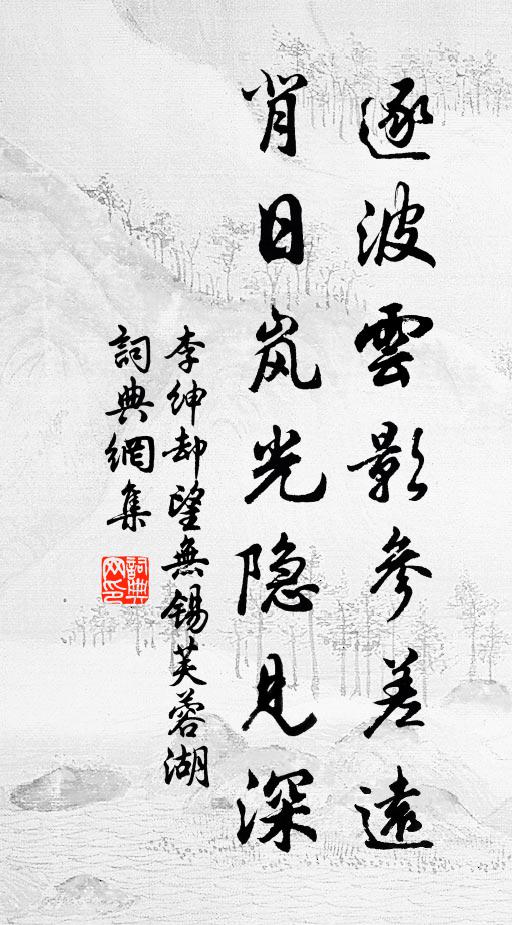 逐波雲影參差遠
背日岚光隐見深
李紳却望無锡芙蓉湖
詞典網集
詞典网印